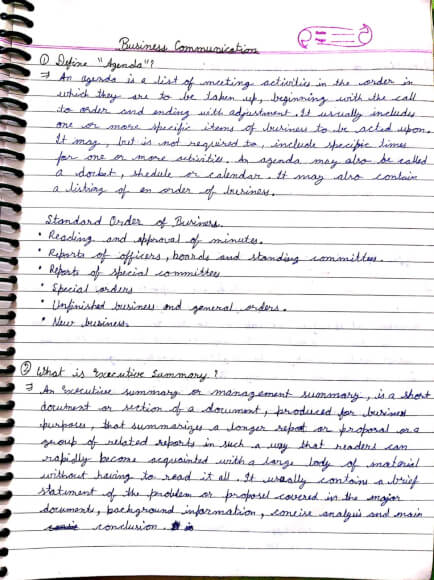 Business Communication
① Define "Agenda"?
⇒ An agenda is a list of meeting activities in the order in
which they are to be taken up, beginning with the call
to order and ending with adjustment. It usually includes
one or more specific items of business to be acted upon.
It may, but is not required to, include specific times
for one or more activities. An agenda may also be called
a docket, shedule or calendar. It may also contain
a listing of an order of business.
Standard Order of Business.
• Reading and approval of minutes.
• Reports of officers, boards and standing committees.
• Reports of special committees
• Special orders
• Unfinished business and general orders.
• New business.
② What is Executive Summary?
⇒ An Executive summary or management summary, is a short
document or section of a document, produced for business
purposes, that summarizes a longer report or proposal or a
group of related reports in such a way that readers can
rapidly become acquainted with a large body of material
without having to read it all. It usually contains a brief
statement of the problem or proposal covered in the major
documents, background information, concise analysis and main
conclusion.